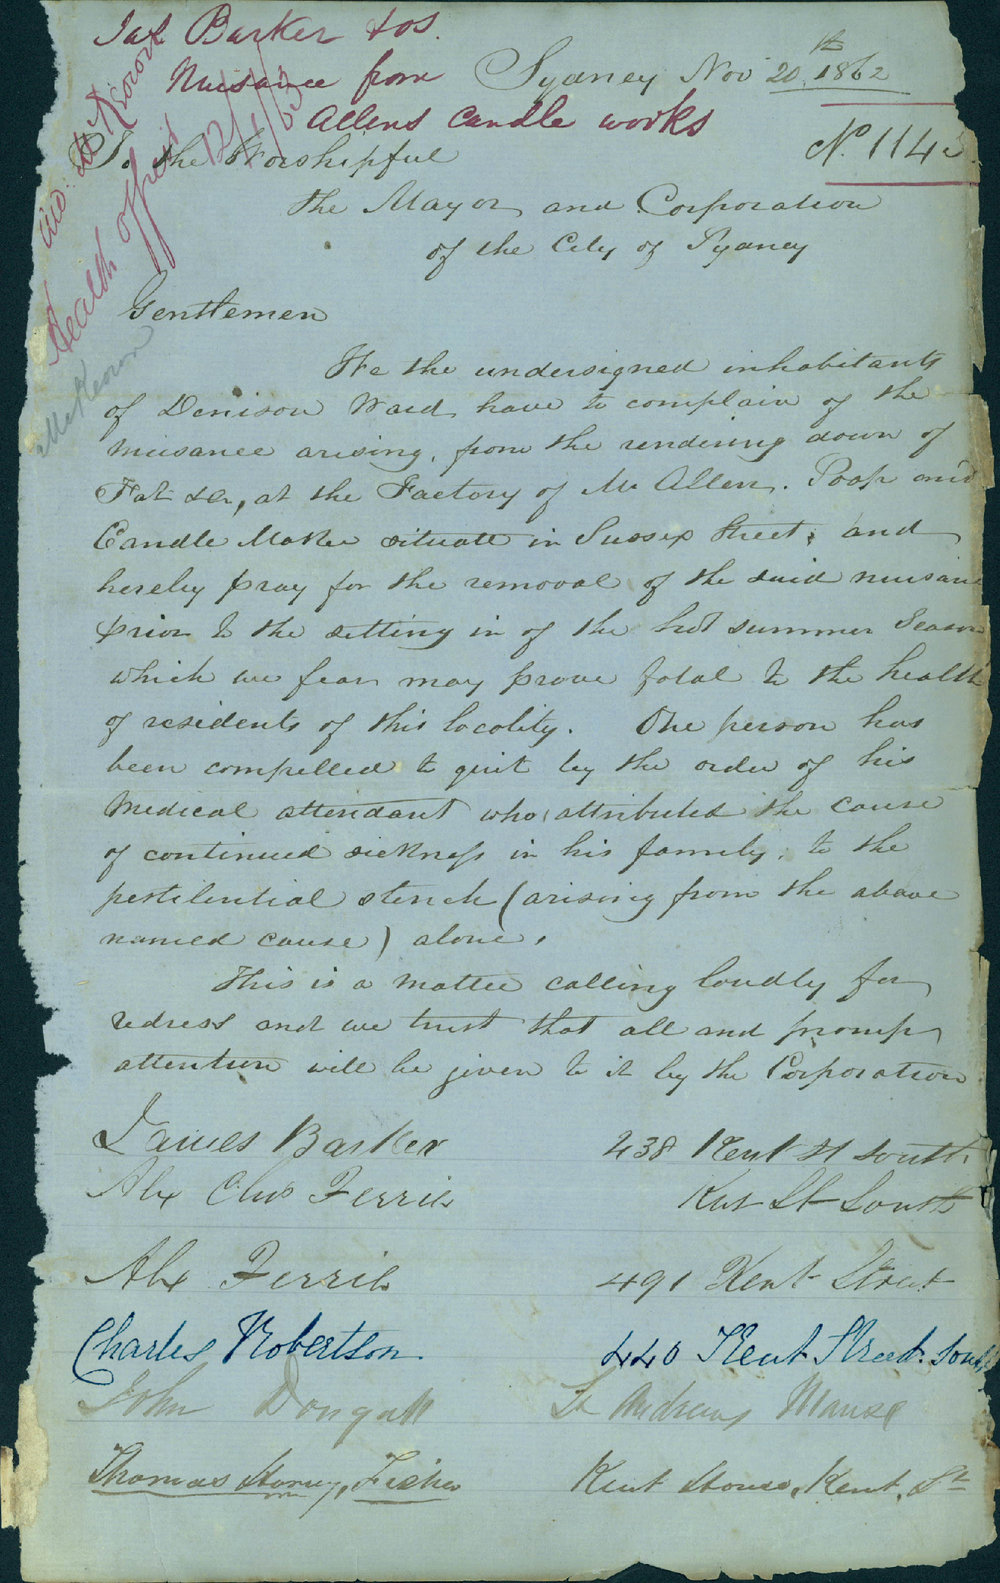 Jas Barker & os.
Nuisance from
Allens Candle works
Health officer
12/1/63
Sydney Nov 20th 1862
No. 1143
To the Worshipful
the Mayor and Corporation
of the City of Sydney
Gentlemen
We the undersigned inhabitants
of Denison Ward have to complain of the
nuisance arising, from the rendering down of
Fat &c, at the Factory of Mr Allen. Soap and
Candle Maker situate in Sussex Street, and
hereby pray for the removal of the said nuisanc
prior to the setting in of the hot summer Season
which we fear may prove fatal to the health
of residents of this locality. One person has
been compelled to quit by the order of his
Medical attendant who attributes the cause
of continued sickness in his family, to the
pestilential stench (arising from the above
named cause) alone.
This is a matter calling loudly for
redress and we trust that all and promp
attention will be given to it by the Corporation
James Barker 238 Kent St South
Alex Chas Ferrib Kent St South
Alex Ferrib 491 Kent Street
Charles Robertson 440 Kent Street South
John Dougall St Andrews Manse
Thomas Harvey, Fisher Kent House, Kent, St